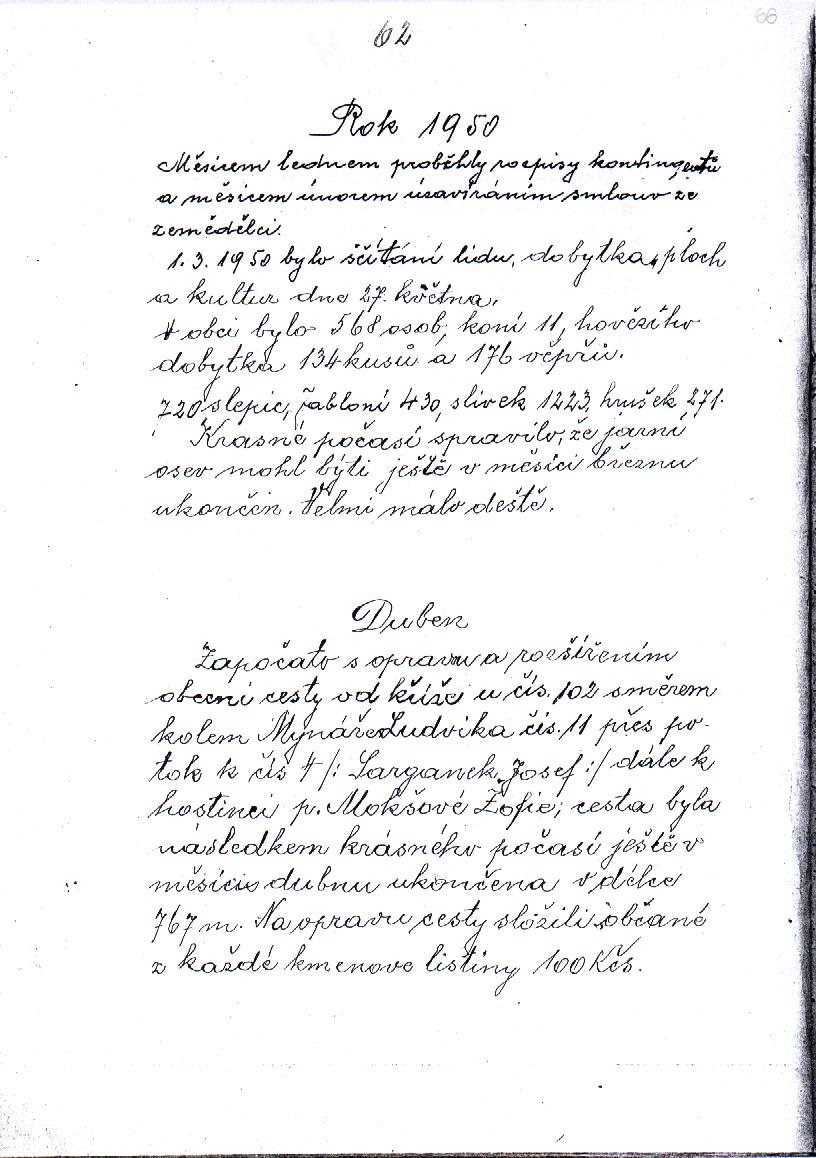 66
62
Rok 1950
Měsícem lednem proběhly rozpisy kontingentů
a měsícem únorem úzavíráním smlouv ze
zemědělci.
1. 3. 1950 bylo ščítání lidu, dobytka, ploch
a kultur dne 27. května.
V obci bylo 568 osob, koní 11, hovězího
dobytka 134 kusů a 176 vepřů.
720 slepic, jabloní 430, slivek 1223, hrušek 271.
Krasné počasí spravilo, že jarní
osev mohl býti ještě v měsíci březnu
ukončen. Velmi málo deště.
Duben
Započato s opravou a rozšířením
obecní cesty od kříže u čís. 102 směrem
kolem Mynáře Ludvika čís. 11 přes po-
tok k čís 4 /: Sarganek Josef :/ dále k
hostinci p. Mokšové Žofie; cesta byla
následkem krásného počasí ještě v
měsíci dubnu ukončena v délce
767 m. Na opravu cesty složili občané
z každé kmenove listiny 100 Kčs.